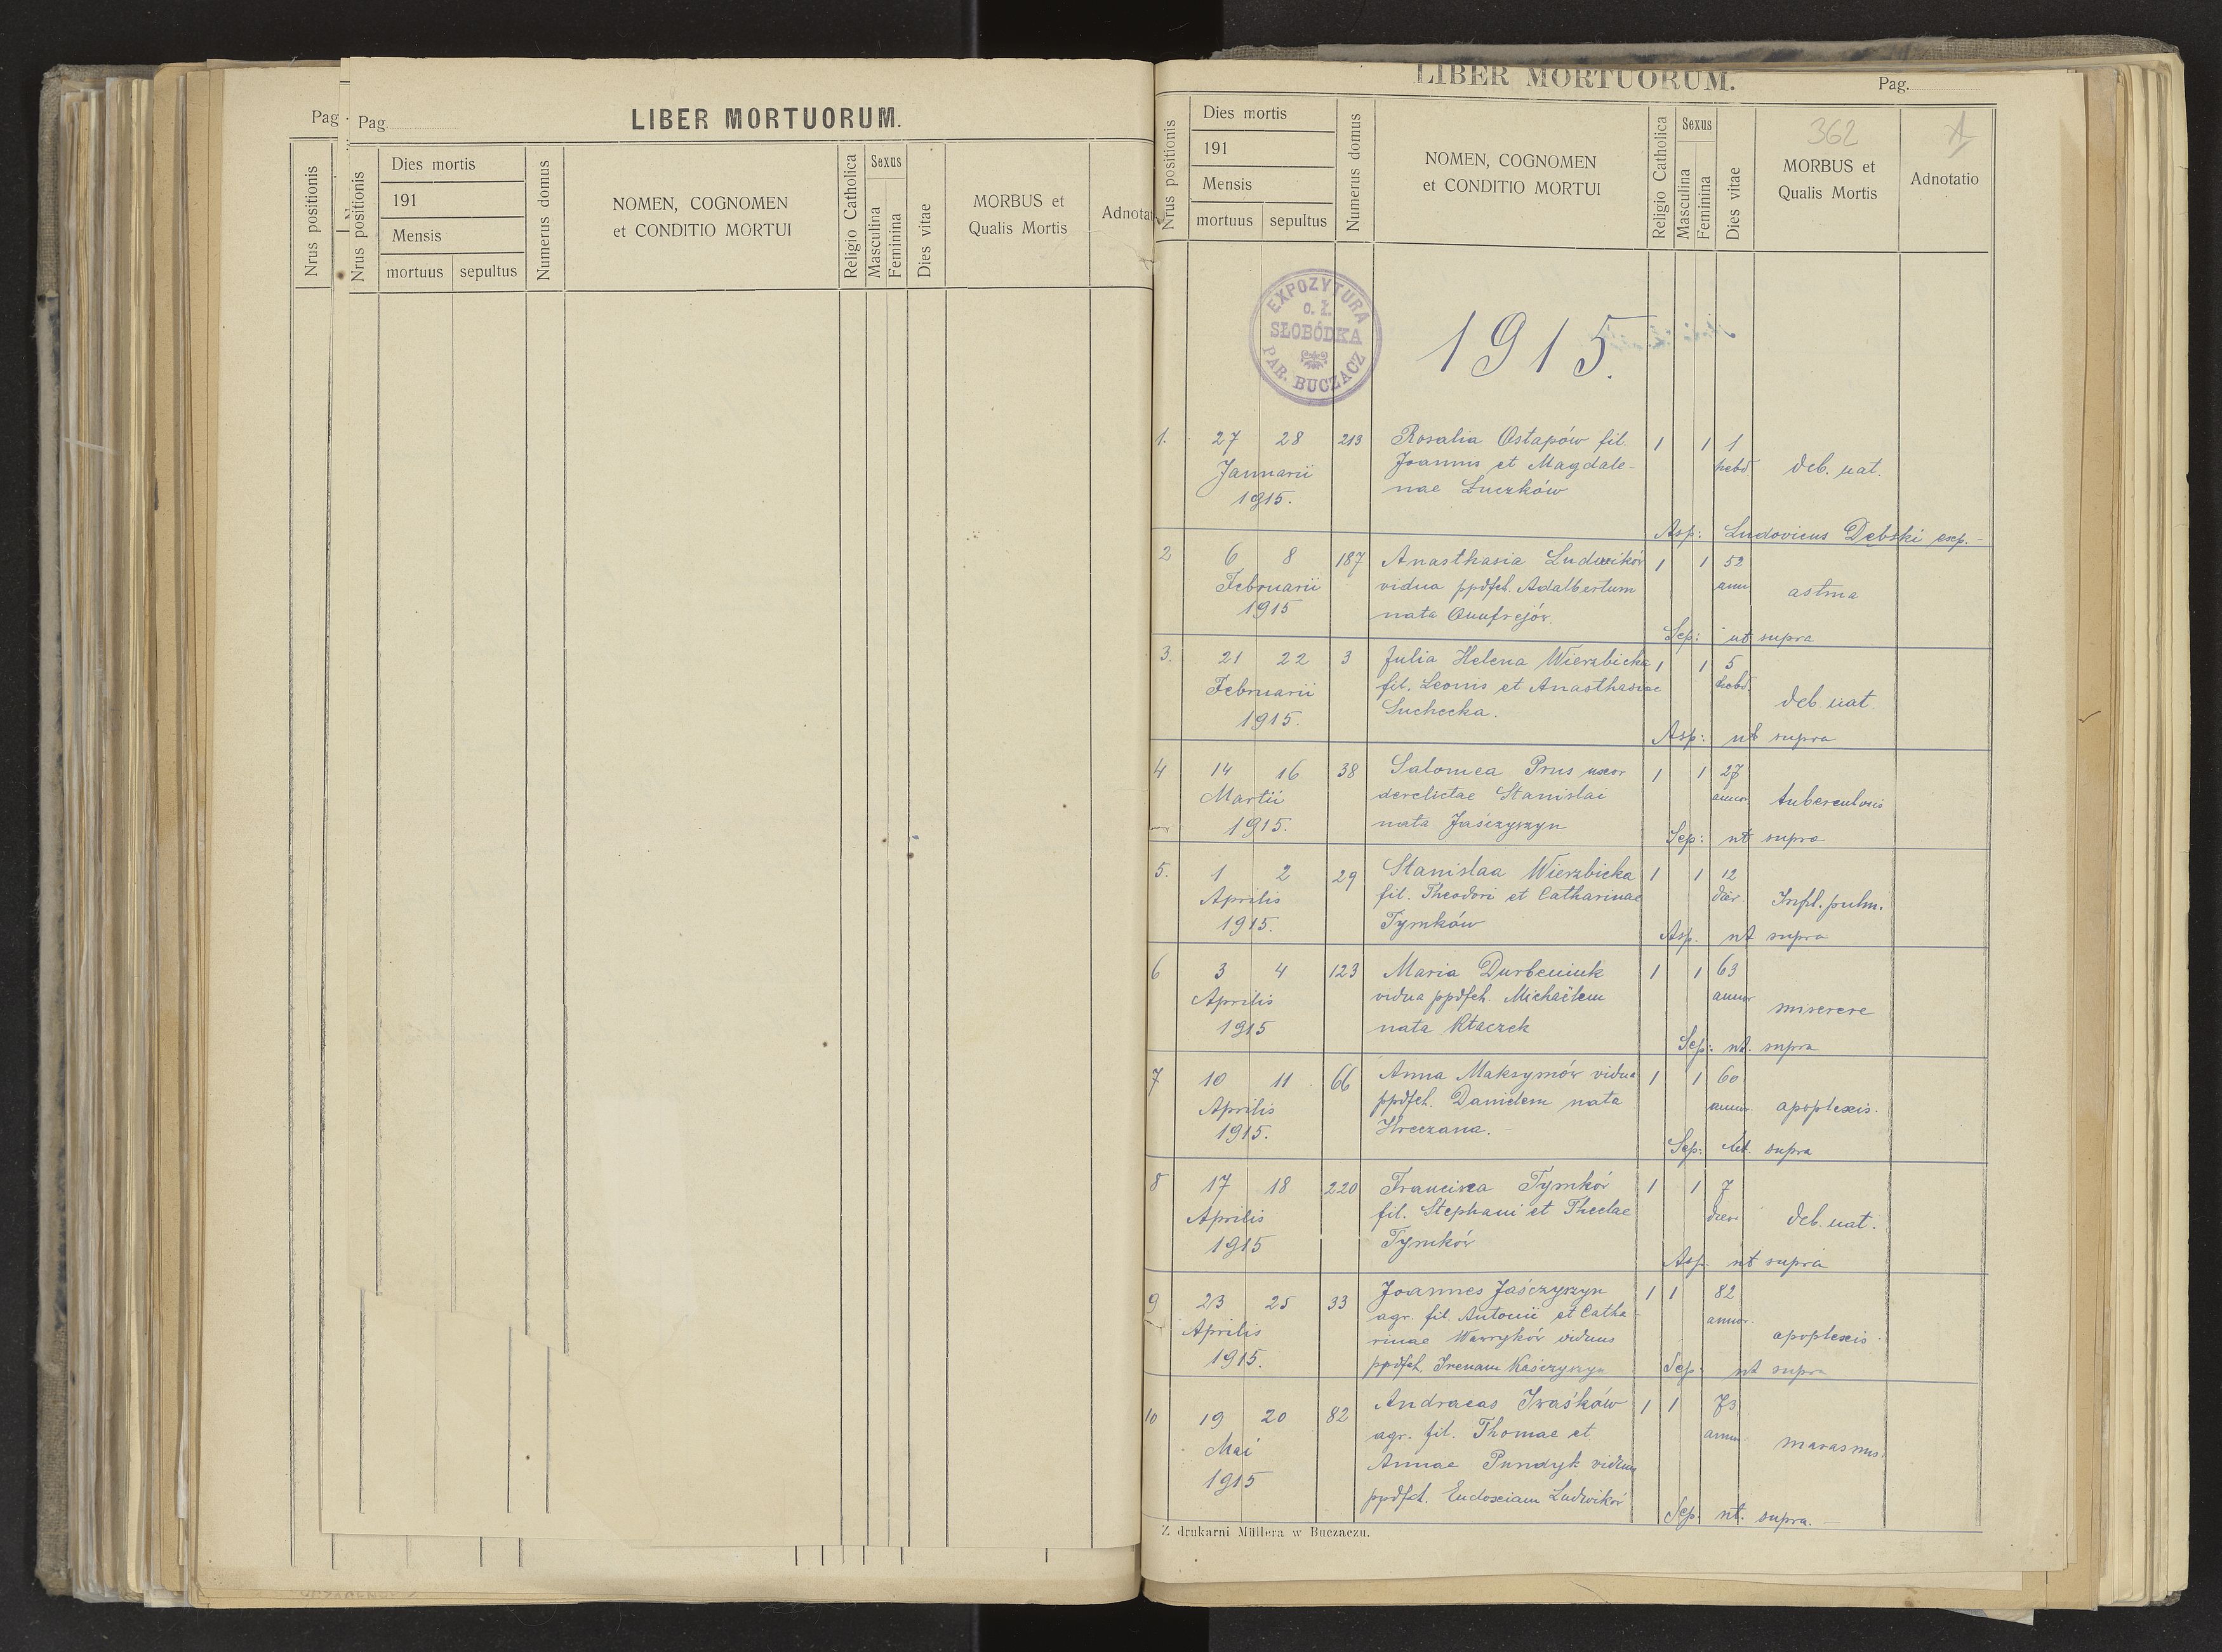 Pag.
Nrus positionis
Pag.
LIBER MORTUORUM.
Nrus positionis
Dies mortis
191
Mensis
mortuus
sepultus
Numerus domus
NOMEN, COGNOMEN
et CONDITIO MORTUI
Religio Catholica
Sexus
Masculina
Feminina
Dies vitae
MORBUS et
Qualis Mortis
LIBER MORTUORUM.
Pag.
Nrus positionis
Dies mortis
191
Mensis
mortuus
sepultus
Numerus domus
NOMEN, COGNOMEN
et CONDITIO MORTUI
Religio Catholica
Sexus
Masculina
Feminina
Dies vitae
362
MORBUS et
Qualis Mortis
Adnotatio
EXPOZYTURA
o. ł.
SŁOBÓDKA
PAR. BUCZACZ
1915.
1. 27 28 213 Rosalia Ostapów fil. 1 1 1
Januarii Joannis et Magdale- hebd. deb. nat.
1915. nae Łuczków
Asp: Ludovicus Dębski exp.
2 6 8 187 Anasthasia Ludwików 1 1 52
Februarii vidua ppdfct. Adalbertum ann astma
1915 nata Onufrejów.
Sep: ut supra
3. 21 22 3 Julia Helena Wierzbicka 1 1 5
Februarii fil. Leonis et Anasthasiae hebd. deb. nat.
1915. Suchecka.
Asp: ut supra
4 14 16 38 Salomea Prus uxor 1 1 27
Martii derelictae Stanislai annor. tuberculosis
1915. nata Jaśczyszyn
Sep: ut supra
5. 1 2 29 Stanislaa Wierzbicka 1 1 12
Aprilis fil. Theodori et Catharinae dier. Infl. pulm.
1915. Tymków
Asp. ut supra
6 3 4 123 Maria Durbeniuk 1 1 63
Aprilis vidua ppdfct. Michaëlem annor miserere
1915 nata Ptaczek
Sep: ut. supra
7 10 11 66 Anna Maksymów vidua 1 1 60
Aprilis ppdfct. Danielem nata annor. apoplexis.
1915. Hreczana.
Sep: ut. supra
8 17 18 220 Francisca Tymków 1 1 7
Aprilis fil. Stephani et Theclae dier deb. nat.
1915 Tymków
Asp. ut supra
9 23 25 33 Joannes Jaśczyszyn 1 1 82
Aprilis agr. fil. Antonii et Catha- annor.
1915. rinae Wawryków viduus apoplexis.
ppdfct. Irenam Kaśczyszyn Sep: ut supra
10 19 20 82 Andraeas Iwaśków 1 1 73
Mai agr. fil. Thomae et annor marasmus.
1915 Annae Pundyk viduus
ppdfct. Eudoxiam Ludwików
Sep. ut. supra.
Z drukarni Müllera w Buczaczu.